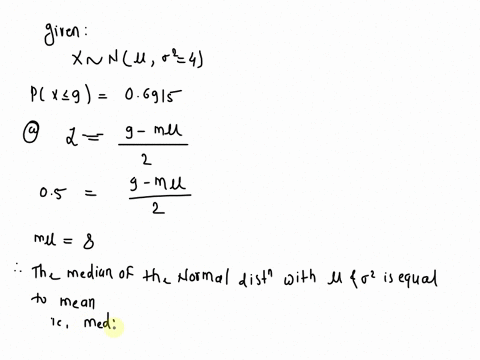 given:
X ~ N(μ, σ²=4)
P(x≤9) = 0.6915
ⓐ Z = (9 - mμ)/2
0.5 = (9 - mμ)/2
mμ = 8
∴ The median of the Normal distⁿ with μ & σ² is equal
to mean
ie, med: